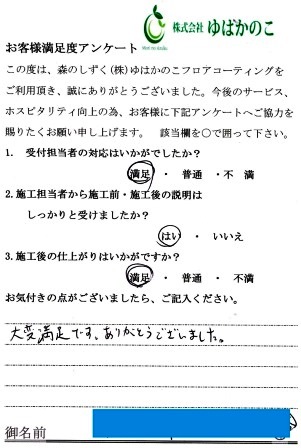 株式会社 ゆばかのこ
お客様満足度アンケート
この度は、森のしずく(株)ゆばかのこフロアコーティングを
ご利用頂き、誠にありがとうございました。今後のサービス、
ホスピタリティ向上の為、お客様に下記アンケートへご協力を
賜りたくお願い申し上げます。 該当欄を○で囲って下さい。
1. 受付担当者の対応はいかがでしたか?
満足 ・ 普通 ・ 不 満
2.施工担当者から施工前・施工後の説明は
しっかりと受けましたか?
はい ・ いいえ
3.施工後の仕上がりはいかがですか?
満足 ・ 普通 ・ 不満
お気付きの点がございましたら、ご記入ください。
大変満足です、ありがとうございました。
御名前